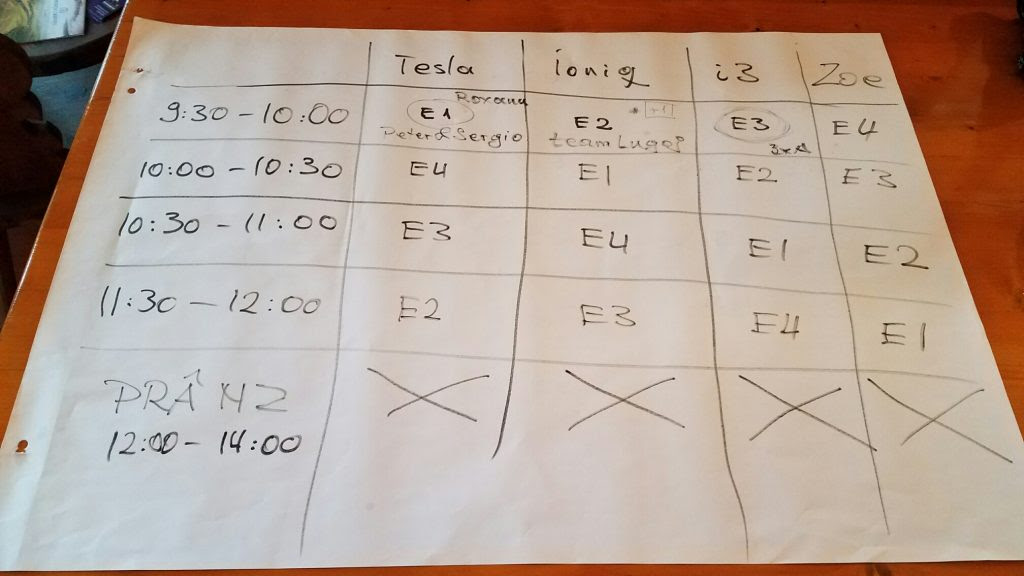 Tesla ioniq i3 Zoe
9:30 - 10:00 E1 Roxana E2 * +1 E3 E4
Peter & Sergio team Lugoj 3x
10:00 - 10:30 E4 E1 E2 E3
10:30 - 11:00 E3 E4 E1 E2
11:30 - 12:00 E2 E3 E4 E1
PRÂNZ
12:00 - 14:00